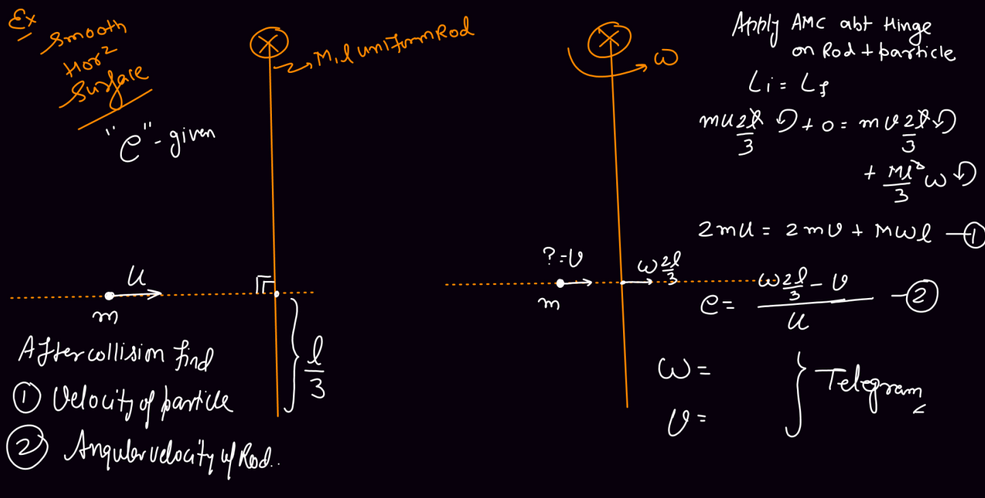 Ex
Smooth
Horz
Surface
"e"-given
M, l uniform Rod
u
m
l/3
After collision find
① Velocity of particle
② Angular velocity of Rod.
ω
?=v
m
ω2l/3
Apply AMC abt Hinge
on Rod + particle
Li = Lf
mu2l/3 ↺ + 0 = mv2l/3 ↺
+ Ml²/3 ω ↺
2mu = 2mv + Mωl —①
e = (ω2l/3 - v)/u —②
ω =
v =
} Telegram